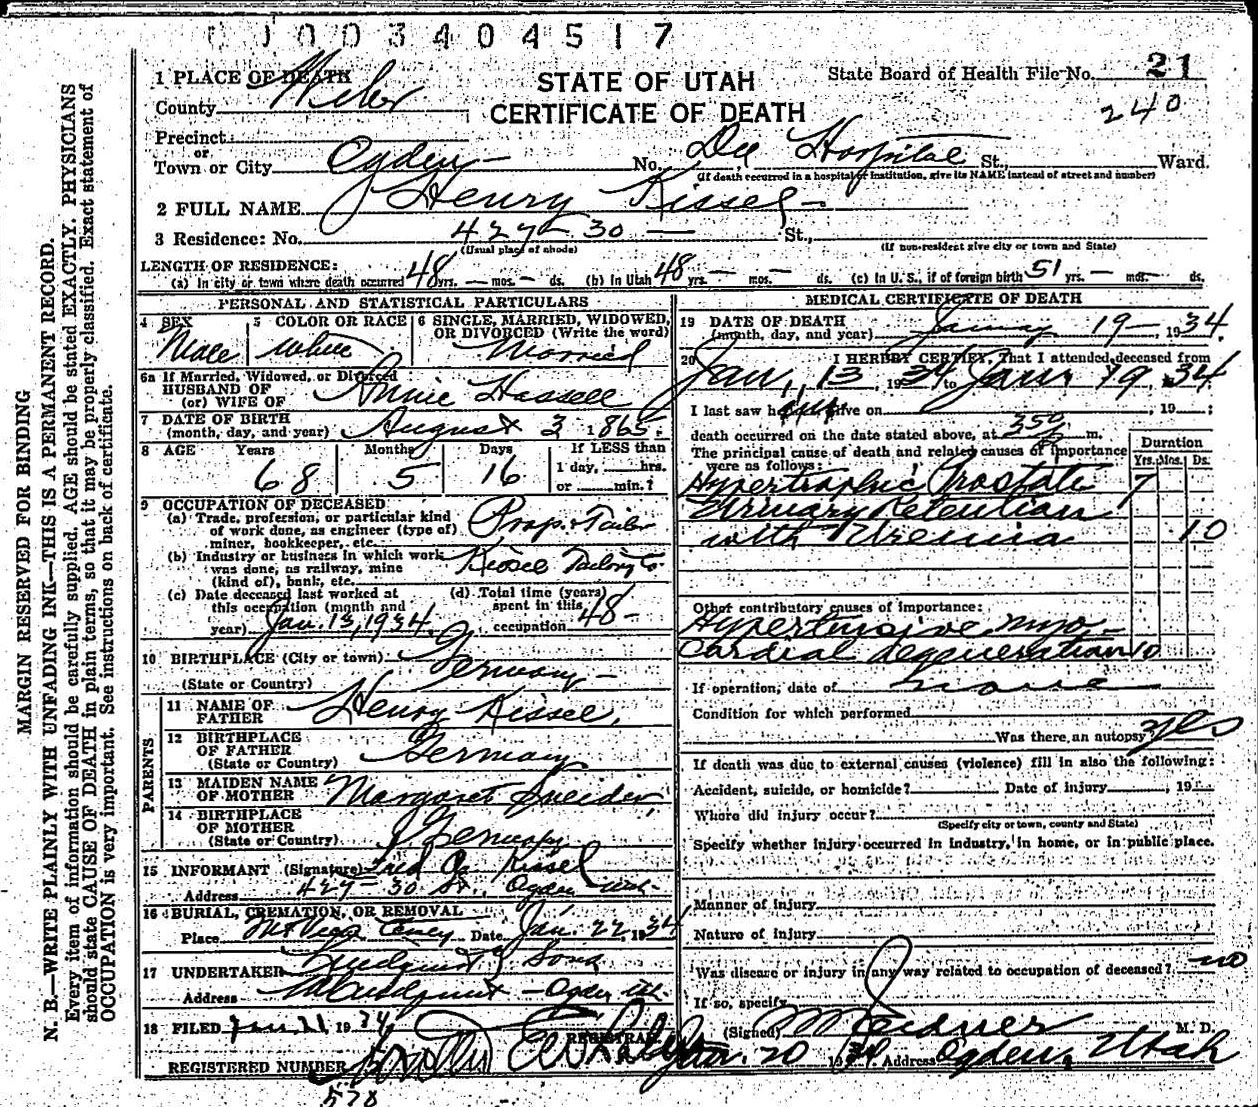 0 0 3 4 0 4 5 1 7
STATE OF UTAH
CERTIFICATE OF DEATH
State Board of Health File No. 21
240
1 PLACE OF DEATH
County Weber
Precinct
or
Town or City Ogden No. Dee Hospital St., Ward.
(If death occurred in a hospital or institution, give its NAME instead of street and number)
2 FULL NAME Henry Kissel
3 Residence: No. 427 - 30 St.,
(Usual place of abode) (If non-resident give city or town and State)
LENGTH OF RESIDENCE:
(a) In city or town where death occurred 48 yrs. — mos. — ds. (b) In Utah 48 yrs. — mos. — ds. (c) In U. S., if of foreign birth 51 yrs. — mos. — ds.
PERSONAL AND STATISTICAL PARTICULARS
4 SEX Male
5 COLOR OR RACE White
6 SINGLE, MARRIED, WIDOWED, OR DIVORCED (Write the word) Married
6a If Married, Widowed, or Divorced
HUSBAND OF
(or) WIFE OF Annie Hassell
7 DATE OF BIRTH
(month, day, and year) August 3 1865
8 AGE Years 68 Months 5 Days 16 If LESS than
1 day, hrs.
or min.?
9 OCCUPATION OF DECEASED
(a) Trade, profession, or particular kind
of work done, as engineer (type of)
miner, bookkeeper, etc. Prop. Tailor
(b) Industry or business in which work
was done, as railway, mine
(kind of), bank, etc. Kissel Tailoring Co
(c) Date deceased last worked at
this occupation (month and
year) Jan. 13, 1934
(d) Total time (years)
spent in this
occupation 48
10 BIRTHPLACE (City or town)
(State or Country) Germany
PARENTS
11 NAME OF
FATHER Henry Kissel
12 BIRTHPLACE
OF FATHER
(State or Country) Germany
13 MAIDEN NAME
OF MOTHER Margaret
14 BIRTHPLACE
OF MOTHER
(State or Country) Germany
15 INFORMANT (Signature) Fred Kissel
Address 427 - 30 St., Ogden Utah
16 BURIAL, CREMATION, OR REMOVAL
Place Date Jan. 22, 1934
17 UNDERTAKER Lindquist & Sons
Address Ogden Ut.
18 FILED Jan 21 1934
REGISTRAR
REGISTERED NUMBER
578
MEDICAL CERTIFICATE OF DEATH
19 DATE OF DEATH
(month, day, and year) January 19 — 1934.
20 I HEREBY CERTIFY, That I attended deceased from
Jan, 13, 1934 to Jan. 19, 1934
I last saw him alive on , 19 ;
death occurred on the date stated above, at m.
The principal cause of death and related causes of importance
were as follows:
Duration
Yrs. Mos. Ds.
Hypertrophic Prostate 7
Urinary Retention
with Uremia 10
Other contributory causes of importance:
Hypertensive myo-
cardial degeneration 10
If operation, date of none
Condition for which performed
Was there an autopsy yes
If death was due to external causes (violence) fill in also the following:
Accident, suicide, or homicide? Date of injury , 19
Where did injury occur?
(Specify city or town, county and State)
Specify whether injury occurred in industry, in home, or in public place.
Manner of injury
Nature of injury
Was disease or injury in any way related to occupation of deceased? no
If so, specify
(Signed) M. D.
Jan. 20 1934 Address Ogden, Utah
MARGIN RESERVED FOR BINDING
N. B.—WRITE PLAINLY WITH UNFADING INK—THIS IS A PERMANENT RECORD.
Every item of information should be carefully supplied. AGE should be stated EXACTLY. PHYSICIANS
should state CAUSE OF DEATH in plain terms, so that it may be properly classified. Exact statement of
OCCUPATION is very important. See instructions on back of certificate.